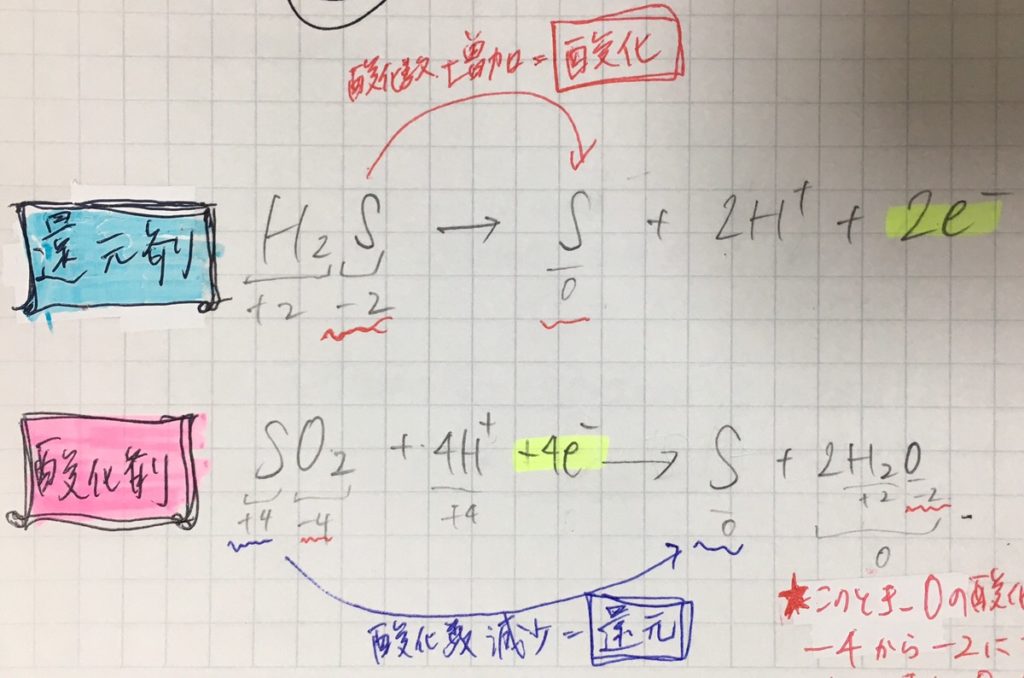 酸化数増加 = 酸化
還元剤 H₂S → S + 2H⁺ + 2e⁻
+2 -2 0
酸化剤 SO₂ + 4H⁺ +4e⁻ → S + 2H₂O
+4 -4 +4 0 +2 -2
0
酸化数 減少 = 還元
★このとき、Oの酸化
-4から-2に